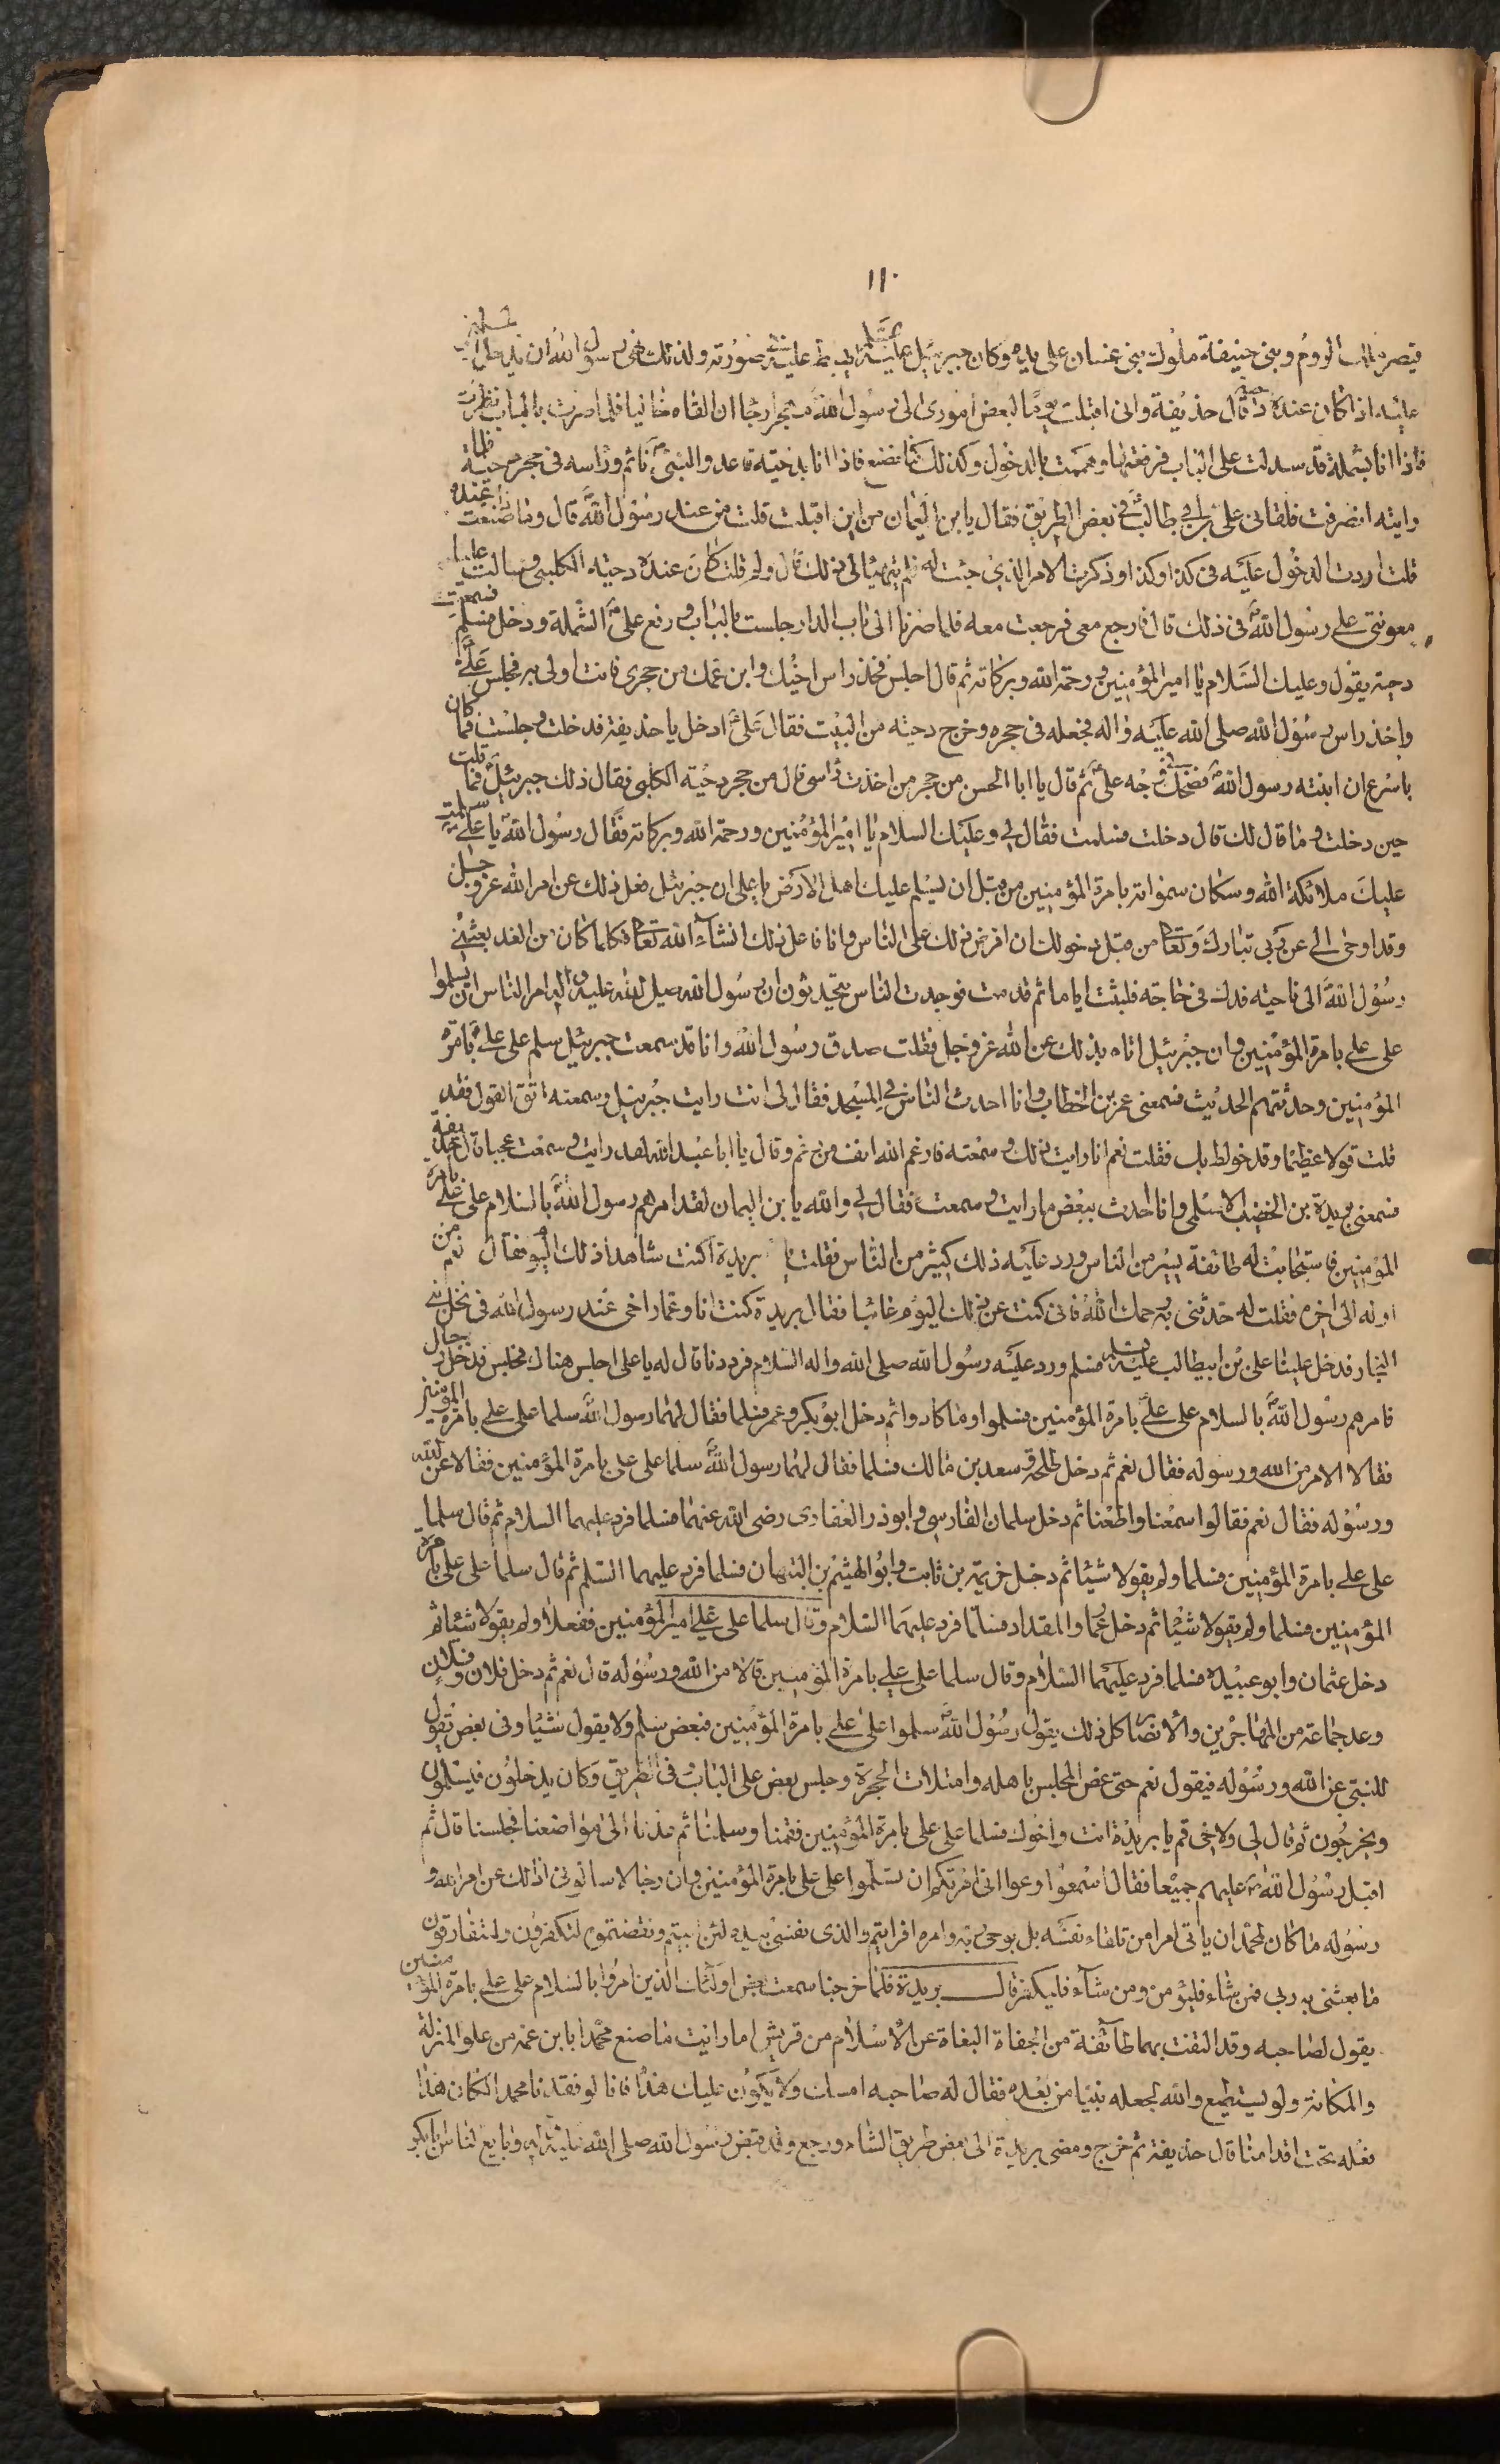 ١١٠
قيصر ملك الروم وبنى حنيفة وملوك بنى غسان على يده وكان جبرئيل عليه السلم يهبط عليه فى صورته ولذلك نهى رسول الله ان يدخل المسلمين
عليه اذا كان عنده دحية قال حذيفة وانى اقبلت يوما لبعض امورى الى رسول الله مهجرا رجاء ان القاه خاليا فلما صرت بالباب نظرت
فاذا انا بشملة قد سدلت على الباب فرفعتها وهممت بالدخول وكذلك كنا نصنع فاذا انا بدحية قاعد والنبى نائم وراسه فى حجر دحية فلما
رايته انصرفت فلقانى على بن ابى طالب فى بعض الطريق فقال يا بن اليمان من اين اقبلت قلت من عند رسول الله قال وما ذا صنعت عنده
قلت اردت الدخول عليه فى كذا وكذا وذكرت الامر الذى جئت له فلم يتهيا لى ذلك قال ولم قلت كان عنده دحية الكلبى وسالت عليا
معونتى على رسول الله فى ذلك قال فارجع معى فرجعت معه فلما صرنا الى باب الدار جلست بالباب ورفع على الشملة ودخل فسلم فسمعت
دحية يقول وعليك السلام يا امير المؤمنين ورحمة الله وبركاته ثم قال اجلس فخذ راس اخيك وابن عمك من حجرى فانت اولى به فجلس على
واخذ راس رسول الله صلى الله عليه واله فجعله فى حجره وخرج دحية من البيت فقال على ادخل يا حذيفة فدخلت وجلست فما كان
باسرع ان انتبه رسول الله فضحك فى وجه على ثم قال يا ابا الحسن من حجر من اخذت راسى قال من حجر دحية الكلبى فقال ذلك جبرئيل فما قلت
حين دخلت وما قال لك قال دخلت فسلمت فقال لى وعليك السلام يا امير المؤمنين ورحمة الله وبركاته فقال رسول الله يا على سلمت
عليك ملائكة الله وسكان سمواته بامرة المؤمنين من قبل ان يسلم عليك اهل الارض يا على ان جبرئيل فعل ذلك عن امر الله عز وجل
وقد اوحى الى عن ربى تبارك وتعالى من قبل دخولك ان افرض ذلك على الناس وانا فاعل ذلك انشاء الله تعالى فلما كان من الغد بعثنى
رسول الله الى ناحية فدك فى حاجة فلبثت اياما ثم قدمت فوجدت الناس يتحدثون ان رسول الله صلى الله عليه واله امر الناس ان يسلموا
على على بامرة المؤمنين وان جبرئيل اتاه بذلك عن الله عز وجل فقلت صدق رسول الله وانا قد سمعت جبرئيل سلم على على بامرة
المؤمنين وحدثتهم الحديث فسمعنى عمر بن الخطاب وانا احدث الناس فى المسجد فقال لى انت رايت جبرئيل وسمعته اتق القول فقد
قلت قولا عظيما وقد خولط بك فقلت نعم انا رايت ذلك وسمعته فارغم الله انف من رغم وقال يا ابا عبد الله لقد رايت وسمعت عجبا قال حذيفة
فسمعنى بريدة بن الخضيب الاسلمى وانا احدث ببعض ما رايت وسمعت فقال لى والله يا بن اليمان لقد امرهم رسول الله بالسلام على على بامرة
المؤمنين فاستجابت له طائفة يسير من الناس ورد عليه ذلك كثير من الناس فقلت يا بريدة اكنت شاهدا ذلك اليوم فقال نعم من
اوله الى اخره فقلت له حدثنى به رحمك الله فانى كنت عن ذلك اليوم غائبا فقال بريدة كنت انا وعمار اخى عند رسول الله فى نخل بنى
النجار فدخل علينا على بن ابيطالب عليه السلم فسلم ورد عليه رسول الله صلى الله واله السلام فرددنا قال له يا على اجلس هناك فجلس فدخل رجال
فامرهم رسول الله بالسلام على على بامرة المؤمنين فسلموا وما كادوا ثم دخل ابو بكر وعمر فسلما فقال لهما رسول الله سلما على على بامرة المؤمنين
فقالا الامر من الله ورسوله فقال نعم ثم دخل طلحة وسعد بن مالك فسلما فقال لهما رسول الله سلما على على بامرة المؤمنين فقالا عن الله
ورسوله فقال نعم فقالوا سمعنا واطعنا ثم دخل سلمان الفارسى وابو ذر الغفارى رضى الله عنهما فسلما فرد عليهما السلام ثم قال سلما
على على بامرة المؤمنين فسلما ولم يقولا شيئا ثم دخل خزيمة بن ثابت وابو الهيثم بن التيهان فسلما فرد عليهما السلم ثم قال سلما على على بامرة
المؤمنين فسلما ولم يقولا شيئا ثم دخل عمار والمقداد فسلما فرد عليهما السلام وقال سلما على على امير المؤمنين ففعلا ولم يقولا شيئا ثم
دخل عثمان وابو عبيدة فسلما فرد عليهما السلام وقال سلما على على بامرة المؤمنين قالا من الله ورسوله قال نعم ثم دخل فلان وفلان
وعد جماعة من المهاجرين والانصار كل ذلك يقول رسول الله سلموا على على بامرة المؤمنين فبعض سلم ولا يقول شيئا وفى بعض يقول
للنبى عن الله ورسوله فيقول نعم حتى غص المجلس باهله وامتلات الحجرة وجلس بعض على الباب وفى الطريق وكان يدخلون فيسلمون
ويخرجون ثم قال لى ولاخى قم يا بريدة انت واخوك فسلما على على بامرة المؤمنين فقمنا وسلمنا ثم عدنا الى مواضعنا فجلسنا قال ثم
اقبل رسول الله عليهم جميعا فقال اسمعوا وعوا انى امرتكم ان تسلموا على على بامرة المؤمنين وان رجالا سالونى اذلك عن امر الله و
رسوله ما كان لمحمد ان ياتى امرا من تلقاء نفسه بل بوحى ربه وامره افرايتم والذى نفسى بيده لئن ابيتم ونقضتموه لتكفرون ولتفارقون
ما بعثنى به ربى فمن شاء فليؤمن ومن شاء فليكفر قال بريدة فلما خرجنا سمعت بعض اولئك الذين امروا بالسلام على على بامرة المؤمنين
يقول لصاحبه وقد التفت بهما طائفة من الجفاة البغاة عن الاسلام من قريش اما رايت ما صنع محمد ابابن عمه من علو المنزلة
والمكانة ولو يستطيع والله لجعله نبيا من بعده فقال له صاحبه امسك ولا يكون عليك هذا فانا لو فقدنا محمدا لكان هذا
فعله تحت اقدامنا قال حذيفة ثم خرج ومضى بريدة الى بعض طريق الشام ورجع وقد قبض رسول الله صلى الله عليه واله وبايع الناس ابا بكر